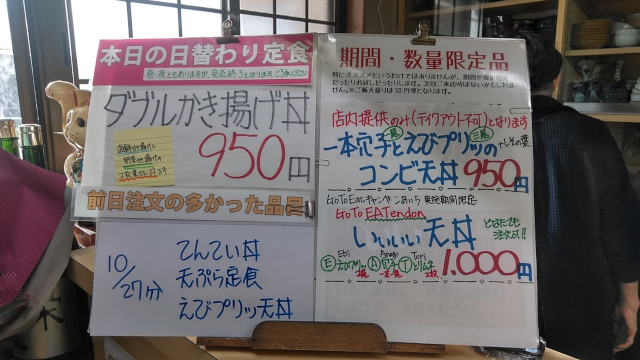 本日の日替わり定食
昼・夜ともありますが、完売終了となります。ご了承ください
ダブルかき揚げ丼
950円
前日注文の多かった品目
10/27分
てんてい丼
天ぷら定食
えびプリッ天丼
期間・数量限定品
店内提供のみ(テイクアウト不可)となります
一本穴子とえびプリッの
+しその葉
コンビ天丼 950円
GoToEatキャンペーンあいち 実施期間限定
GoTo EATendon
いいいい天丼
どなたでも
注文可!!
Ebi Anago Tori
Ⓔえびプリッ Ⓐ穴子 Ⓣとりム子
1.000円